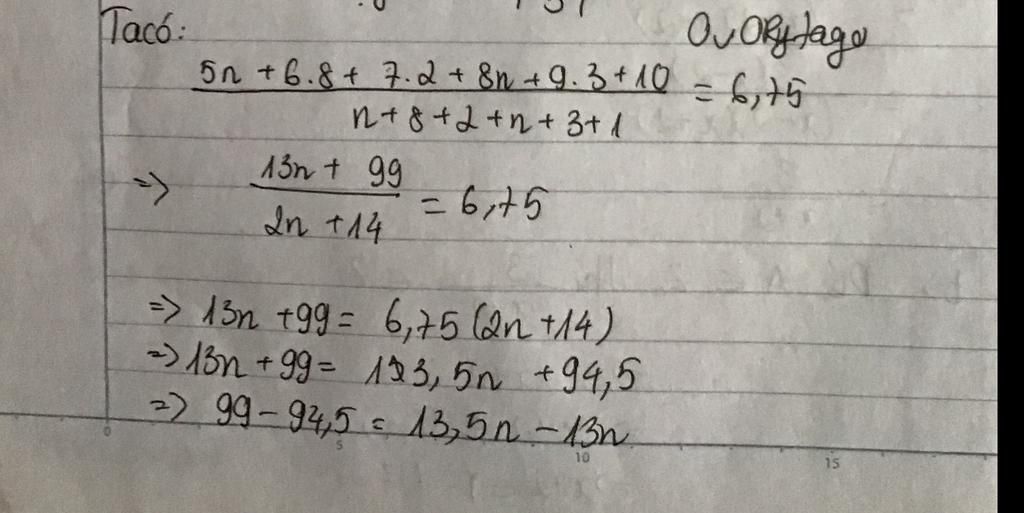 Tacó: OvORytago
5n + 6.8 + 7.2 + 8n + 9.3 + 10 = 6,75
n + 8 + 2 + n + 3 + 1
=> 13n + 99 = 6,75
2n + 14
=> 13n + 99 = 6,75 (2n + 14)
=> 13n + 99 = 13,5n + 94,5
=> 99 - 94,5 = 13,5n - 13n
0 5 10 15